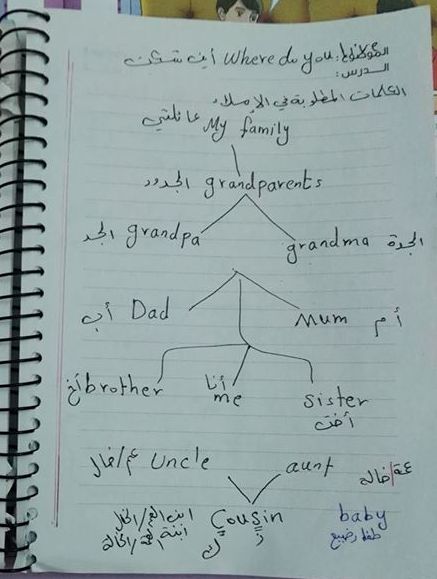 الموضوع: Where do you أين تسكن
الدرس:
الكلمات المطلوبة في الإملاء
My family عائلتي
grandparents الجدود
grandpa الجد grandma الجدة
Dad أب Mum أم
brother أخ me أنا sister أخت
uncle عم/خال aunt عمة/خالة
Cousin ابن العم/الخال baby
ك ز ابنة العمة/الخالة طفل رضيع